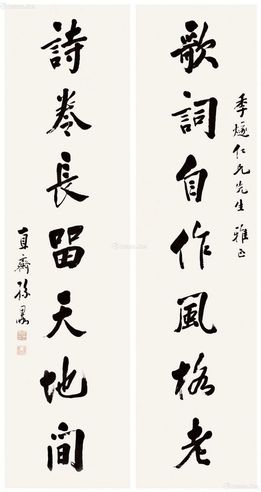 歌詞自作風格老
季煖仁兄先生雅正
詩卷長留天地間
直齋孫墨